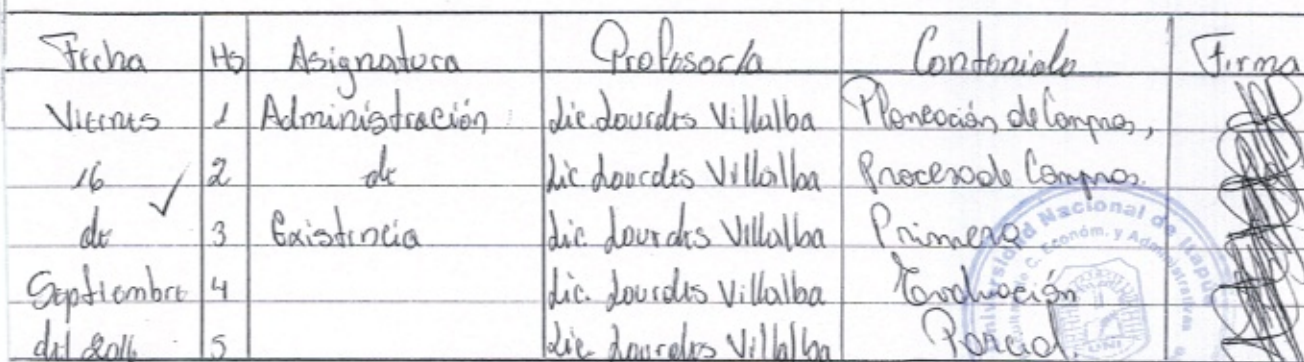 Fecha Hs Asignatura Profesor/a Contenido Firma
Viernes 1 Administración Lic. Lourdes Villalba Planeación de Compras,
16 2 de Lic. Lourdes Villalba Proceso de Compras.
de 3 Existencia Lic. Lourdes Villalba Primera
Septiembre 4 Lic. Lourdes Villalba Evaluación
del 2016 5 Lic. Lourdes Villalba Parcial.
Universidad Nacional de Itapúa
C. Económ. y Administrativas
UNI